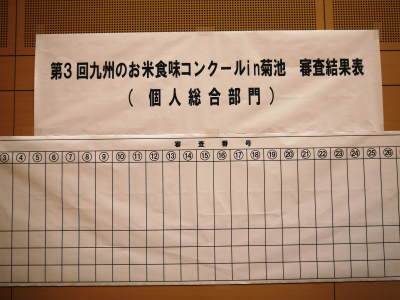 第3回九州のお米食味コンクールin菊池 審査結果表
( 個人総合部門 )
審査番号
③ ④ ⑤ ⑥ ⑦ ⑧ ⑨ ⑩ ⑪ ⑫ ⑬ ⑭ ⑮ ⑯ ⑰ ⑱ ⑲ ⑳ ㉑ ㉒ ㉓ ㉔ ㉕ ㉖